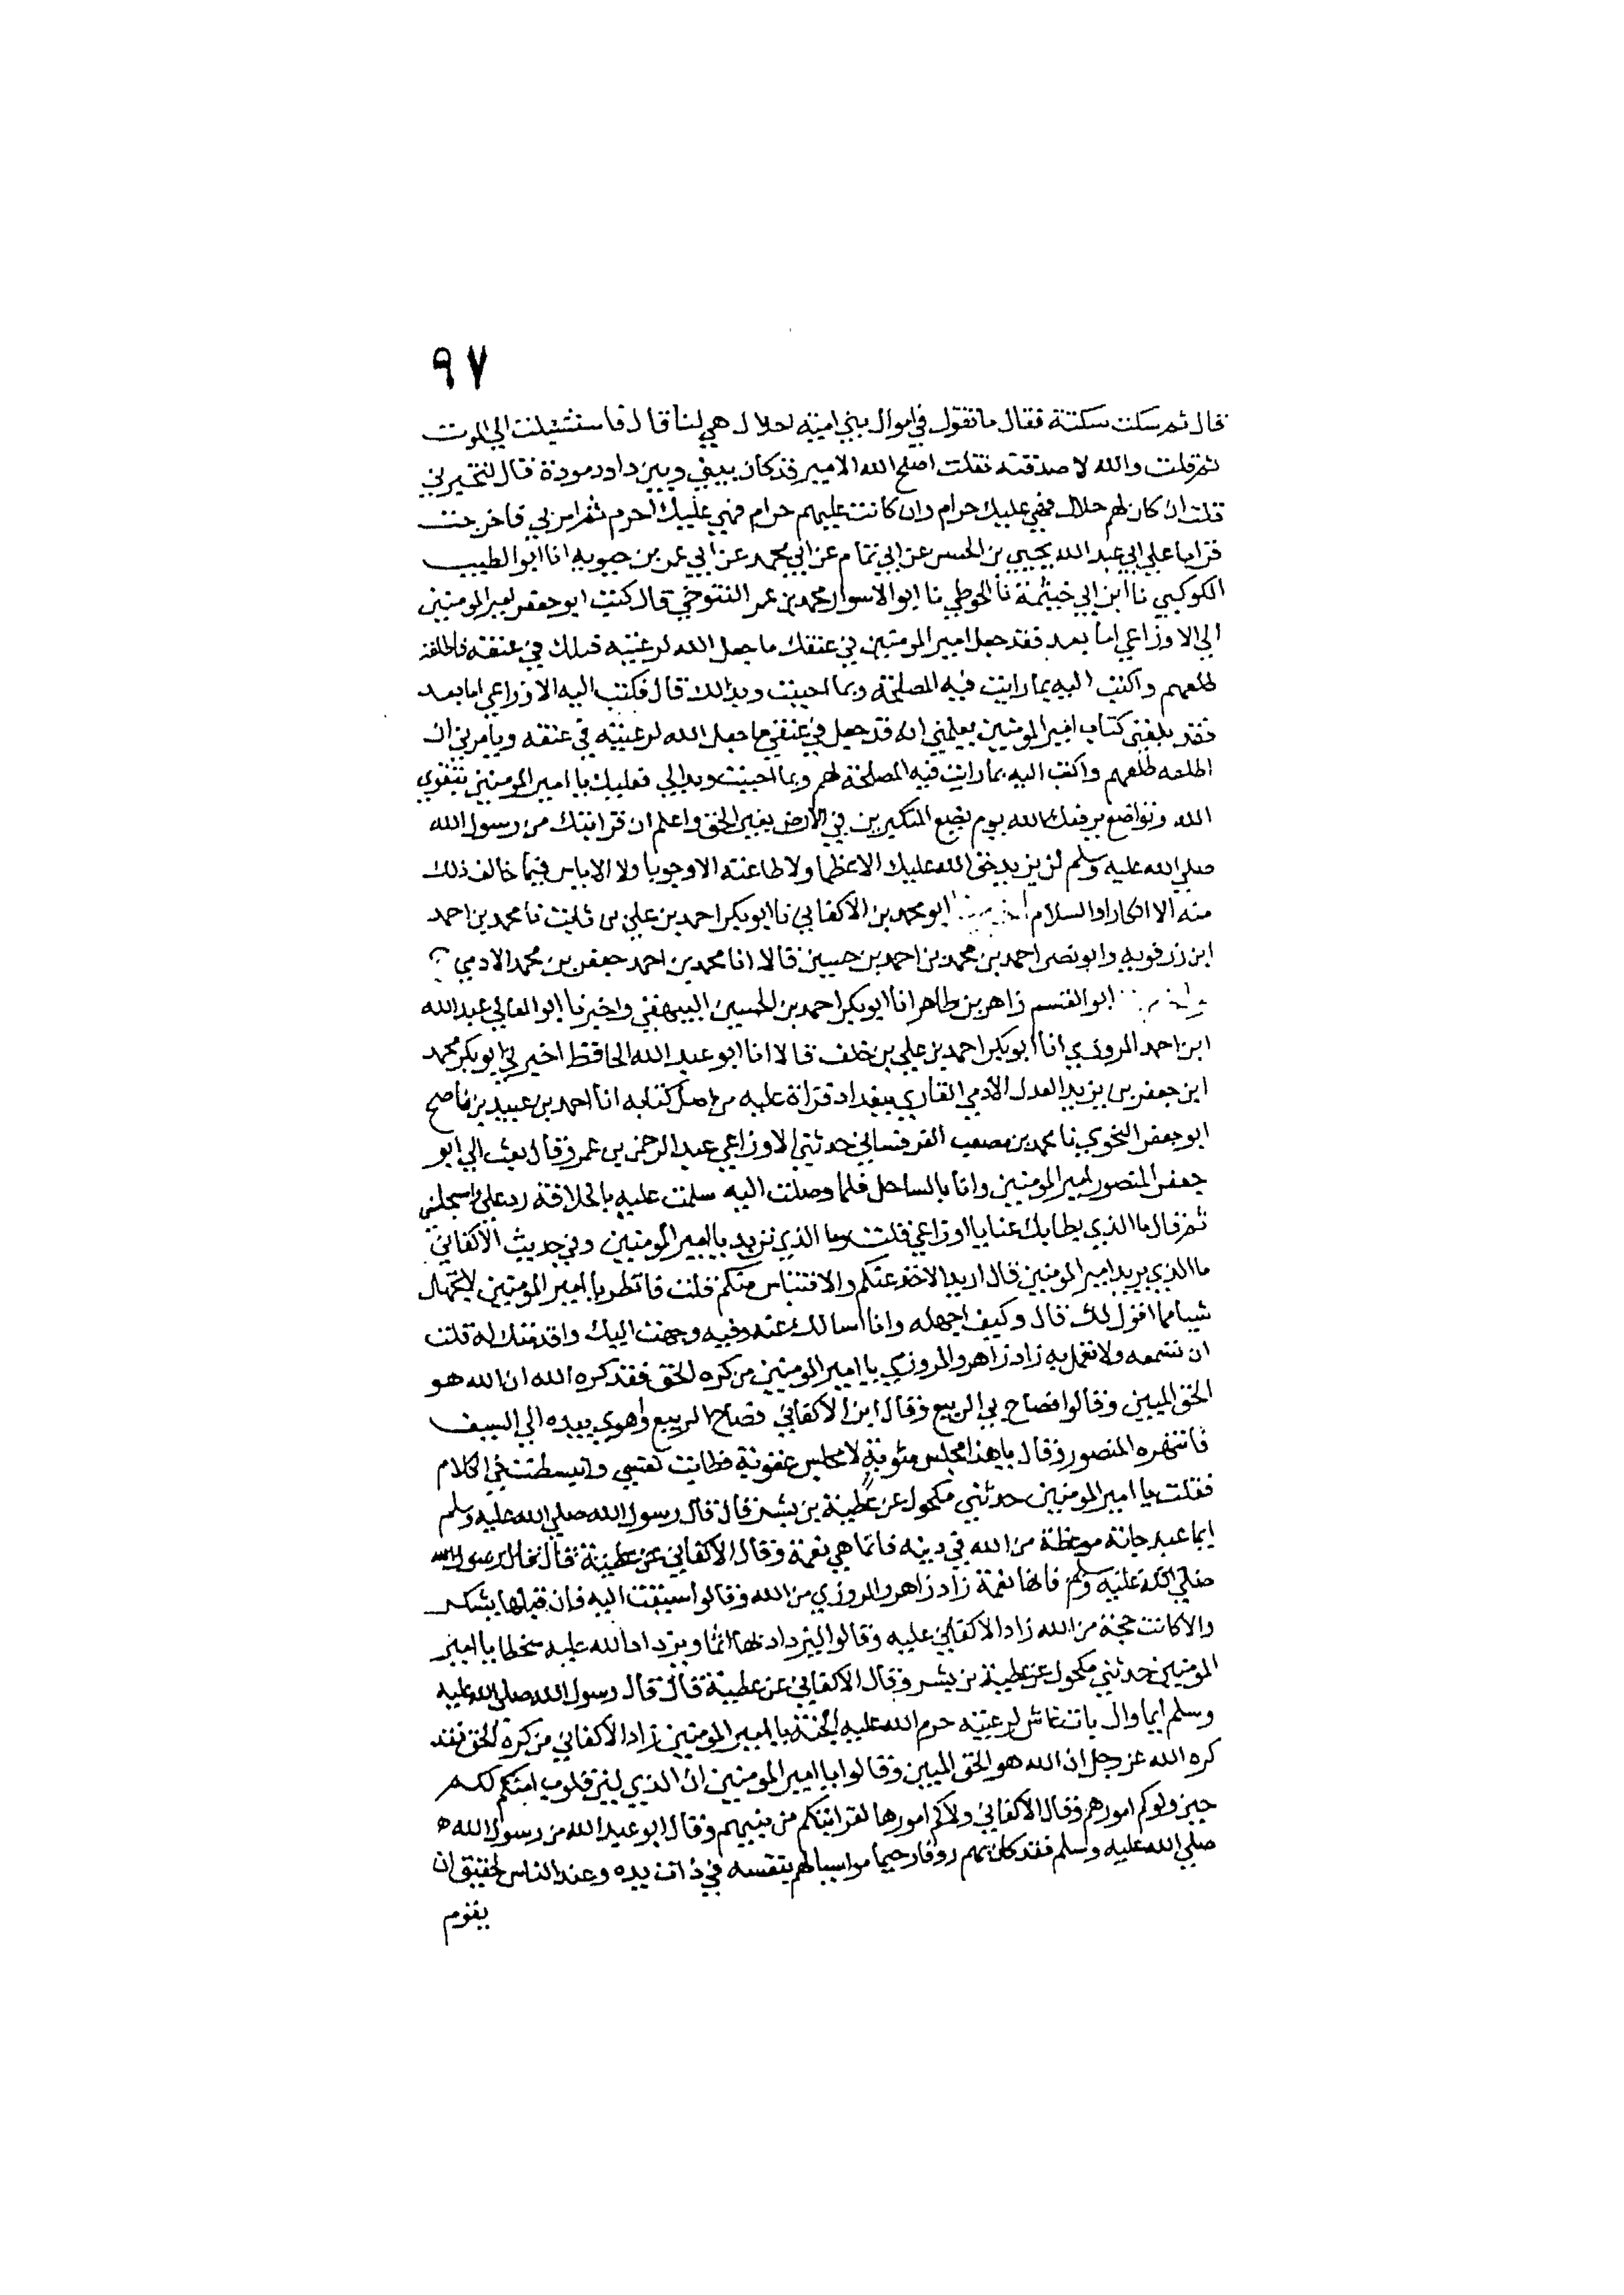 ٩٧
قال ثم سكت سكتة فقال ما تقول في اموال بني امية احلال هي لنا قال فاستشتلت الي الموت
ثم قلت والله لاصدقنه فقلت اصلح الله الامير قد كان بيني وبين داود مودة فقال لتخبرني
قلت ان كان لهم حلال فهي عليك حرام وان كانت عليهم حرام فهي عليك احرم ثم امر بي فاخرجت
قرانا علي ابي عبد الله يحيي بن الحسن عن ابي تمام عن ابي محمد عن ابي عمر بن حيويه انا ابو الطيب
الكوكبي نا ابن ابي خيثمة نا الحوطي نا ابو الاسوار محمد بن عمر التنوخي قال كتب ابو جعفر امير المومنين
الي الاوزاعي اما بعد فقد جعل امير المومنين في عنقك ما جعل الله لرعيته قبلك في عنقه فاطلعه
طلعهم واكتب اليه بما رايت فيه المصلحة وبما احببت وبدالك قال فكتب اليه الاوزاعي اما بعد
فقد بلغني كتاب امير المومنين يعلمني انه قد جعل في عنقي ما جعل الله لرعيته في عنقه ويامرني ان
اطلعه طلعهم واكتب اليه بما رايت فيه المصلحة لهم وبما احببت وبدالي فعليك يا امير المومنين بتقوي
الله وتواضع يرفعك الله يوم يضع المتكبرين في الارض بغير الحق واعلم ان قرابتك من رسول الله
صلي الله عليه وسلم لن يزيد حق الله عليك الا عظما ولا طاعته الا وجوبا ولا الاياس فيما خالف ذلك
منه الا انكارا والسلام ابو محمد بن الاكفاني نا ابو بكر احمد بن علي بن ثابت نا محمد بن احمد
ابن رزقويه وابو نصر احمد بن محمد بن احمد بن حسين قالا انا محمد بن احمد جعفر بن محمد الادمي
ابو القسم زاهر بن طاهر انا ابو بكر احمد بن الحسين البيهقي واخبرنا ابو المعالي عبد الله
ابن احمد المروزي انا ابو بكر احمد بن علي بن خلف قالا انا ابو عبد الله الحافظ اخبرني ابو بكر محمد
ابن جعفر بن يزيد العدل الادمي القاري ببغداد قراة عليه من اصل كتابه انا احمد بن عبيد بن ناصح
ابو جعفر النحوي نا محمد بن مصعب القرقساني حدثني الاوزاعي عبد الرحمن بن عمرو قال بعث الي ابو
جعفر المنصور امير المومنين وانا بالساحل فلما وصلت اليه سلمت عليه بالخلافة رد علي واستجلسني
ثم قال ما الذي بطابك عنا يا اوزاعي قلت وما الذي تريد يا امير المومنين وفي حديث الاكفاني
ما الذي يريد امير المومنين قال اريد الاخذ عنكم والاقتباس منكم قلت فانظر يا امير المومنين لا تجهل
شيا مما اقول لك قال وكيف اجهله وانا اسالك عنه وفيه وجهت اليك واقدمتك له قلت
ان تسمعه ولا تعمل به زاد زاهر والمروزي يا امير المومنين من كره الحق فقد كره الله ان الله هو
الحق المبين وقالوا فصاح بي الربيع وقال ابن الاكفاني فصاح الربيع واهوي بيده الي السيف
فانتهره المنصور وقال يا هذا مجلس مثوبة لا مجلس عقوبة فطابت نفسي وانبسطت في الكلام
فقلت يا امير المومنين حدثني مكحول عن عطية بن بشر قال قال رسول الله صلي الله عليه وسلم
ايما عبد جاته موعظة من الله في دينه فانما هي نعمة وقال الاكفاني عن عطية قال قال رسول الله
صلي الله عليه وسلم فانها نعمة زاد زاهر والمروزي من الله وقالوا سيقت اليه فان قبلها بشكر
والا كانت حجة من الله زاد الاكفاني عليه وقالوا ليزداد بها اثما ويزداد الله عليه سخطا يا امير
المومنين حدثني مكحول عن عطية بن بشر وقال الاكفاني عن عطية قال قال رسول الله صلي الله عليه
وسلم ايما وال بات غاش لرعيته حرم الله عليه الجنة يا امير المومنين زاد الاكفاني من كره الحق فقد
كره الله عز وجل ان الله هو الحق المبين وقالوا يا امير المومنين ان الذي لين قلوب امتكم لكم
حين ولوكم امورهم وقال الاكفاني ولاكم امورها لقرابتكم من نبيهم وقال ابو عبد الله من رسول الله
صلي الله عليه وسلم فقد كان بهم روفا رحيما مواسيا لهم بنفسه في ذات يده وعند الناس لحقيق ان
يقوم